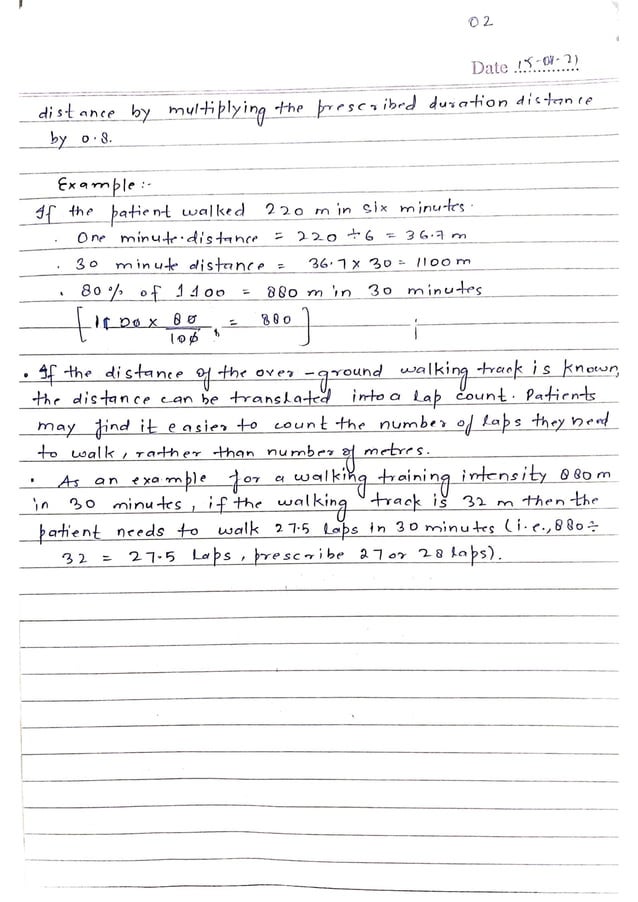 02
Date 15-07-21
distance by multiplying the prescribed duration distance
by 0.8.
Example:-
If the patient walked 220 m in six minutes.
. One minute distance = 220 ÷ 6 = 36.7 m
. 30 minute distance = 36.7 x 30 = 1100 m
. 80% of 1100 = 880 m in 30 minutes
[1100 x 80/100 = 880]
• If the distance of the over-ground walking track is known,
the distance can be translated into a lap count. Patients
may find it easier to count the number of laps they need
to walk, rather than number of metres.
• As an example for a walking training intensity 880m
in 30 minutes, if the walking track is 32 m then the
patient needs to walk 27.5 laps in 30 minutes (i.e., 880÷
32 = 27.5 laps, prescribe 27 or 28 laps).